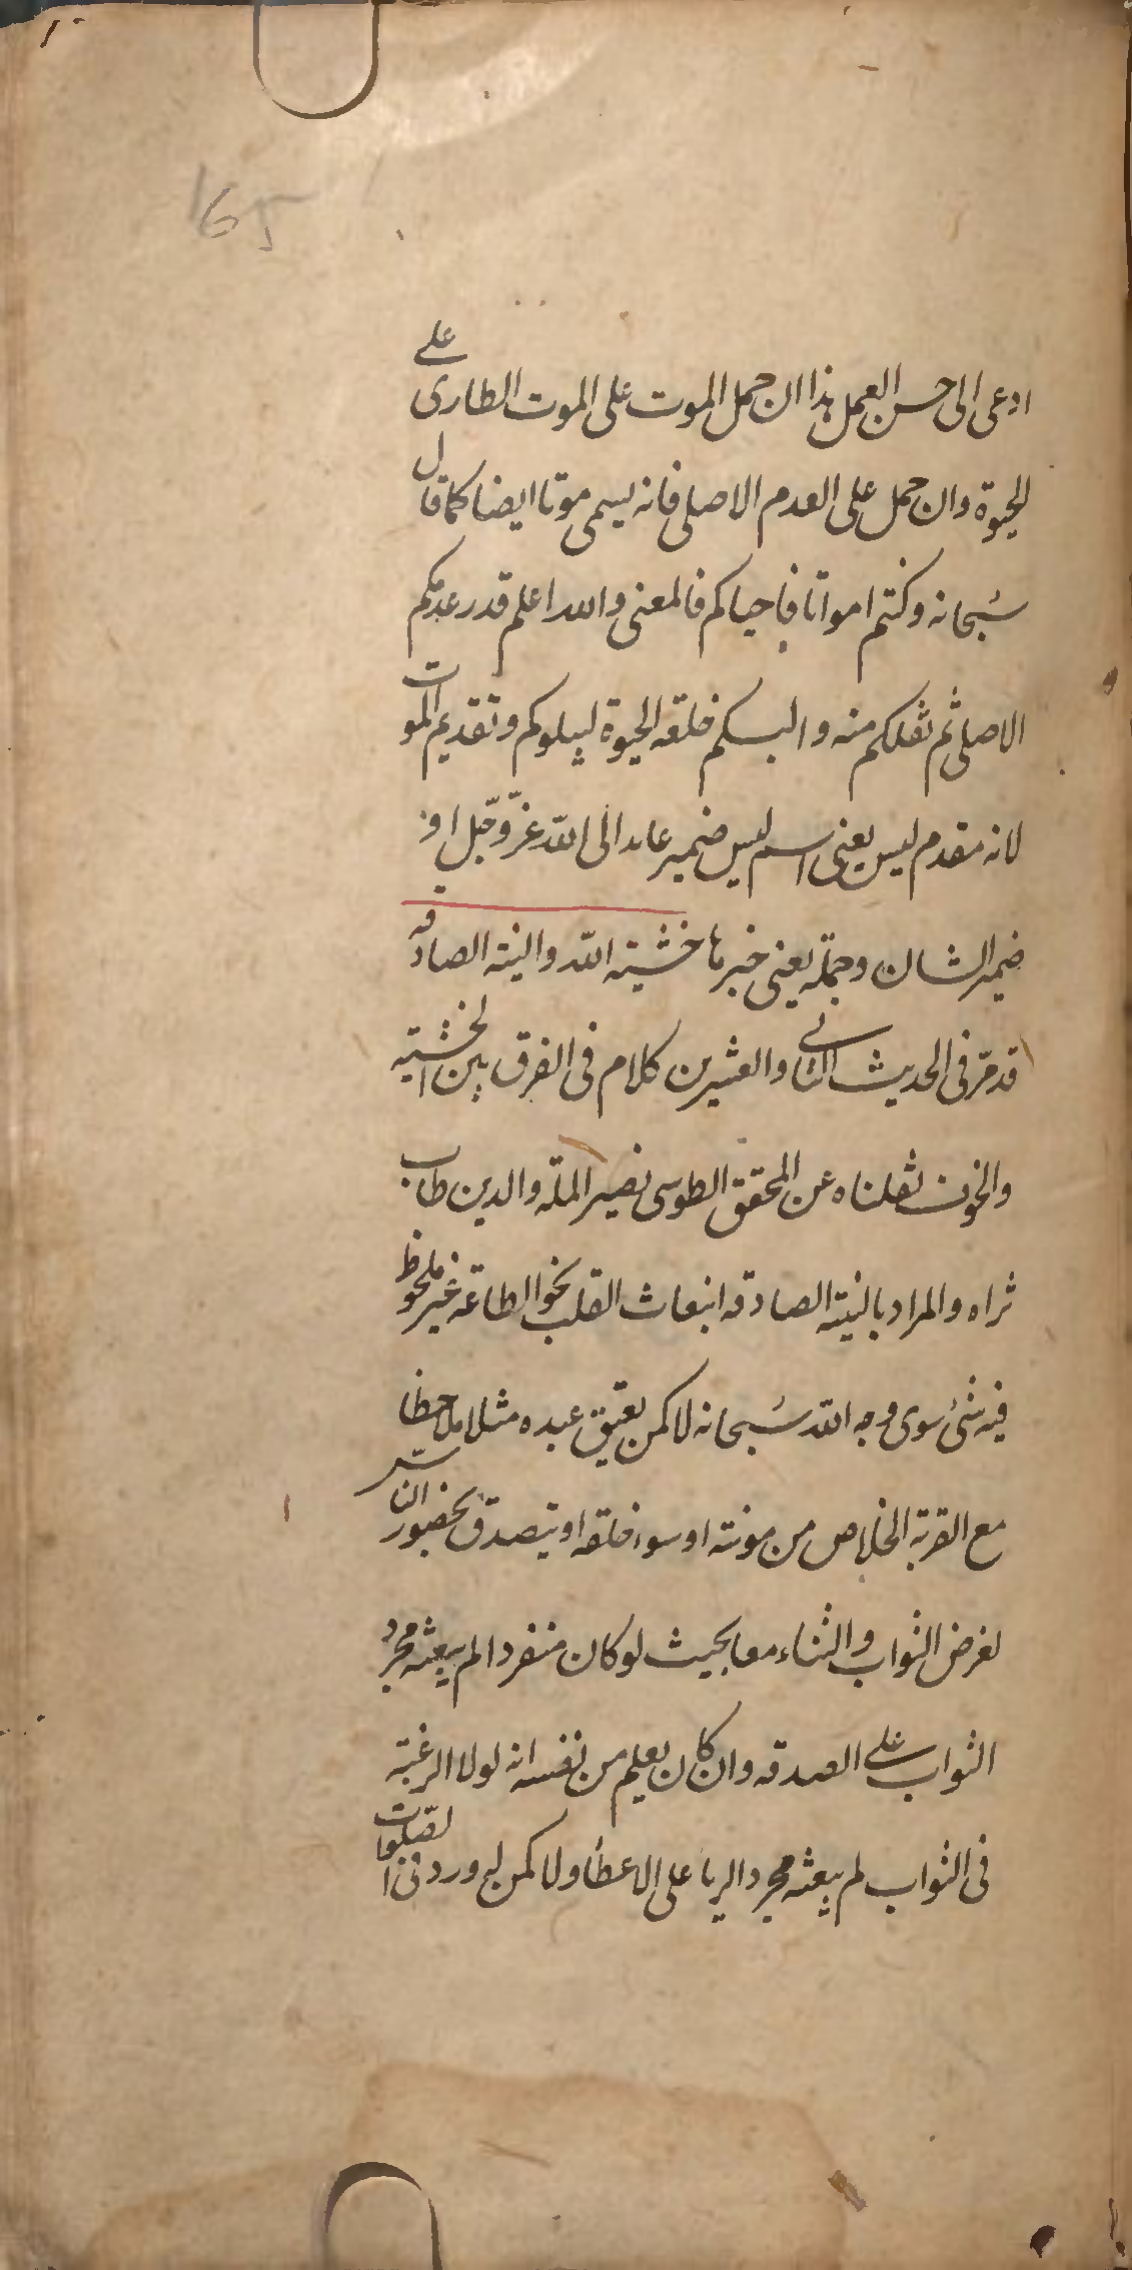 165
ادعى الى حسن العمل هذا ان حمل الموت على الموت الطارى على
الحيوة وان حمل على العدم الاصلى فانه يسمى موتا ايضا كما قال
سبحانه وكنتم امواتا فاحياكم فالمعنى والله اعلم قدر عدمكم
الاصلى ثم نقلكم منه والبسكم خلقه الحيوة ليبلوكم وتقديم الموت
لانه مقدم ليس يعنى اسم ليس ضمير عايد الى الله عزّ وجّل او
ضمير الشان وجملة يعنى خبرها خشيته الله والنيته الصادقه
قد مرّ فى الحديث الثانى والعشرين كلام فى الفرق بين الخشيته
والخوف نقلناه عن المحقق الطوسى نصير الملّة والدين طاب
ثراه والمراد بالنيته الصادقه انبعاث القلب نحو الطاعه غير ملحوظ
فيه شئ سوى وجه الله سبحانه لا كمن يعتق عبده مثلا ملاحظا
مع القربة الخلاص من مونته او سوء خلقه او يتصدق بحضور الناس
لغرض الثواب والثناء معا بحيث لو كان منفردا لم يبعثه مجرد
الثواب على الصدقه وان كان يعلم من نفسه انه لولا الرغبته
فى الثواب لم يبعثه مجرد الريا على الاعطأ ولا كمن له ورد فى الصّلوات